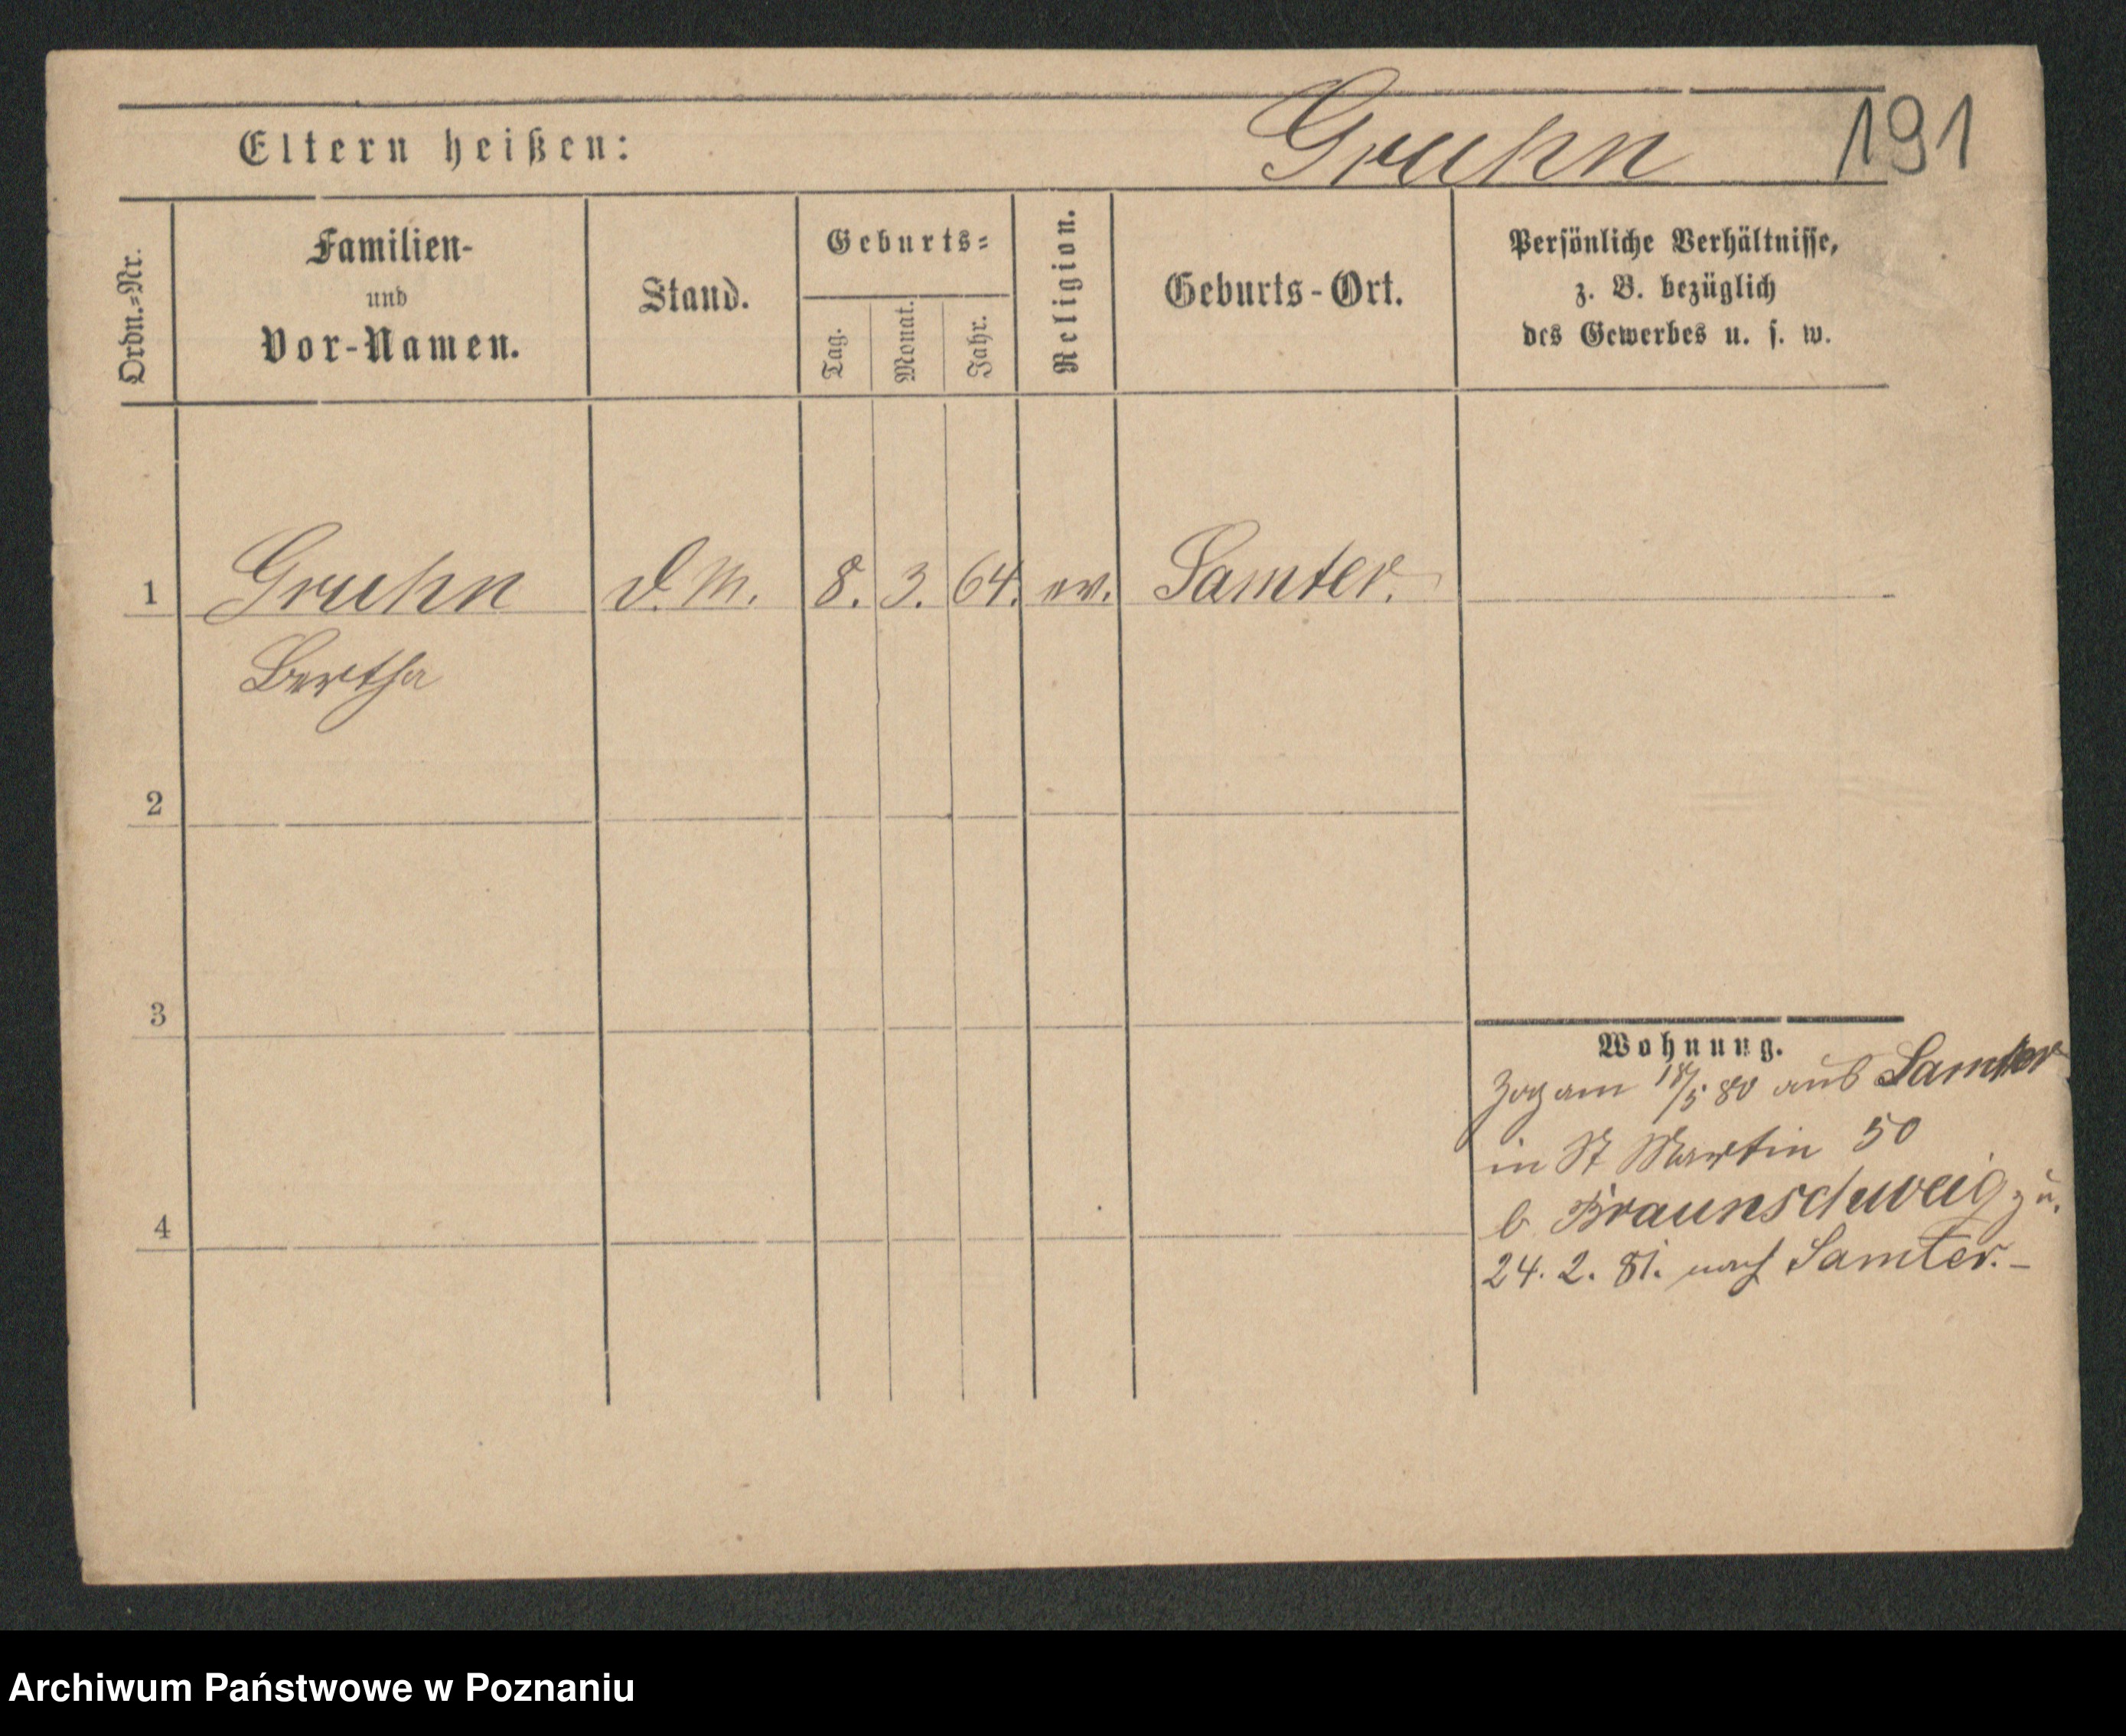 Eltern heißen:
Gruhn
191
Ordn.=Nr.
Familien-
und
Vor-Namen.
Stand.
Geburts=
Tag.
Monat.
Jahr.
Religion.
Geburts-Ort.
Persönliche Verhältnisse,
z. B. bezüglich
des Gewerbes u. s. w.
1 Gruhn D.M. 8. 3. 64. ev. Samter.
Bertha
2
3
4
Wohnung.
Zog am 18/5 80 aus Samter
in St Martin 50
b Braunschweig zu.
24. 2. 81. nach Samter.-
Archiwum Państwowe w Poznaniu